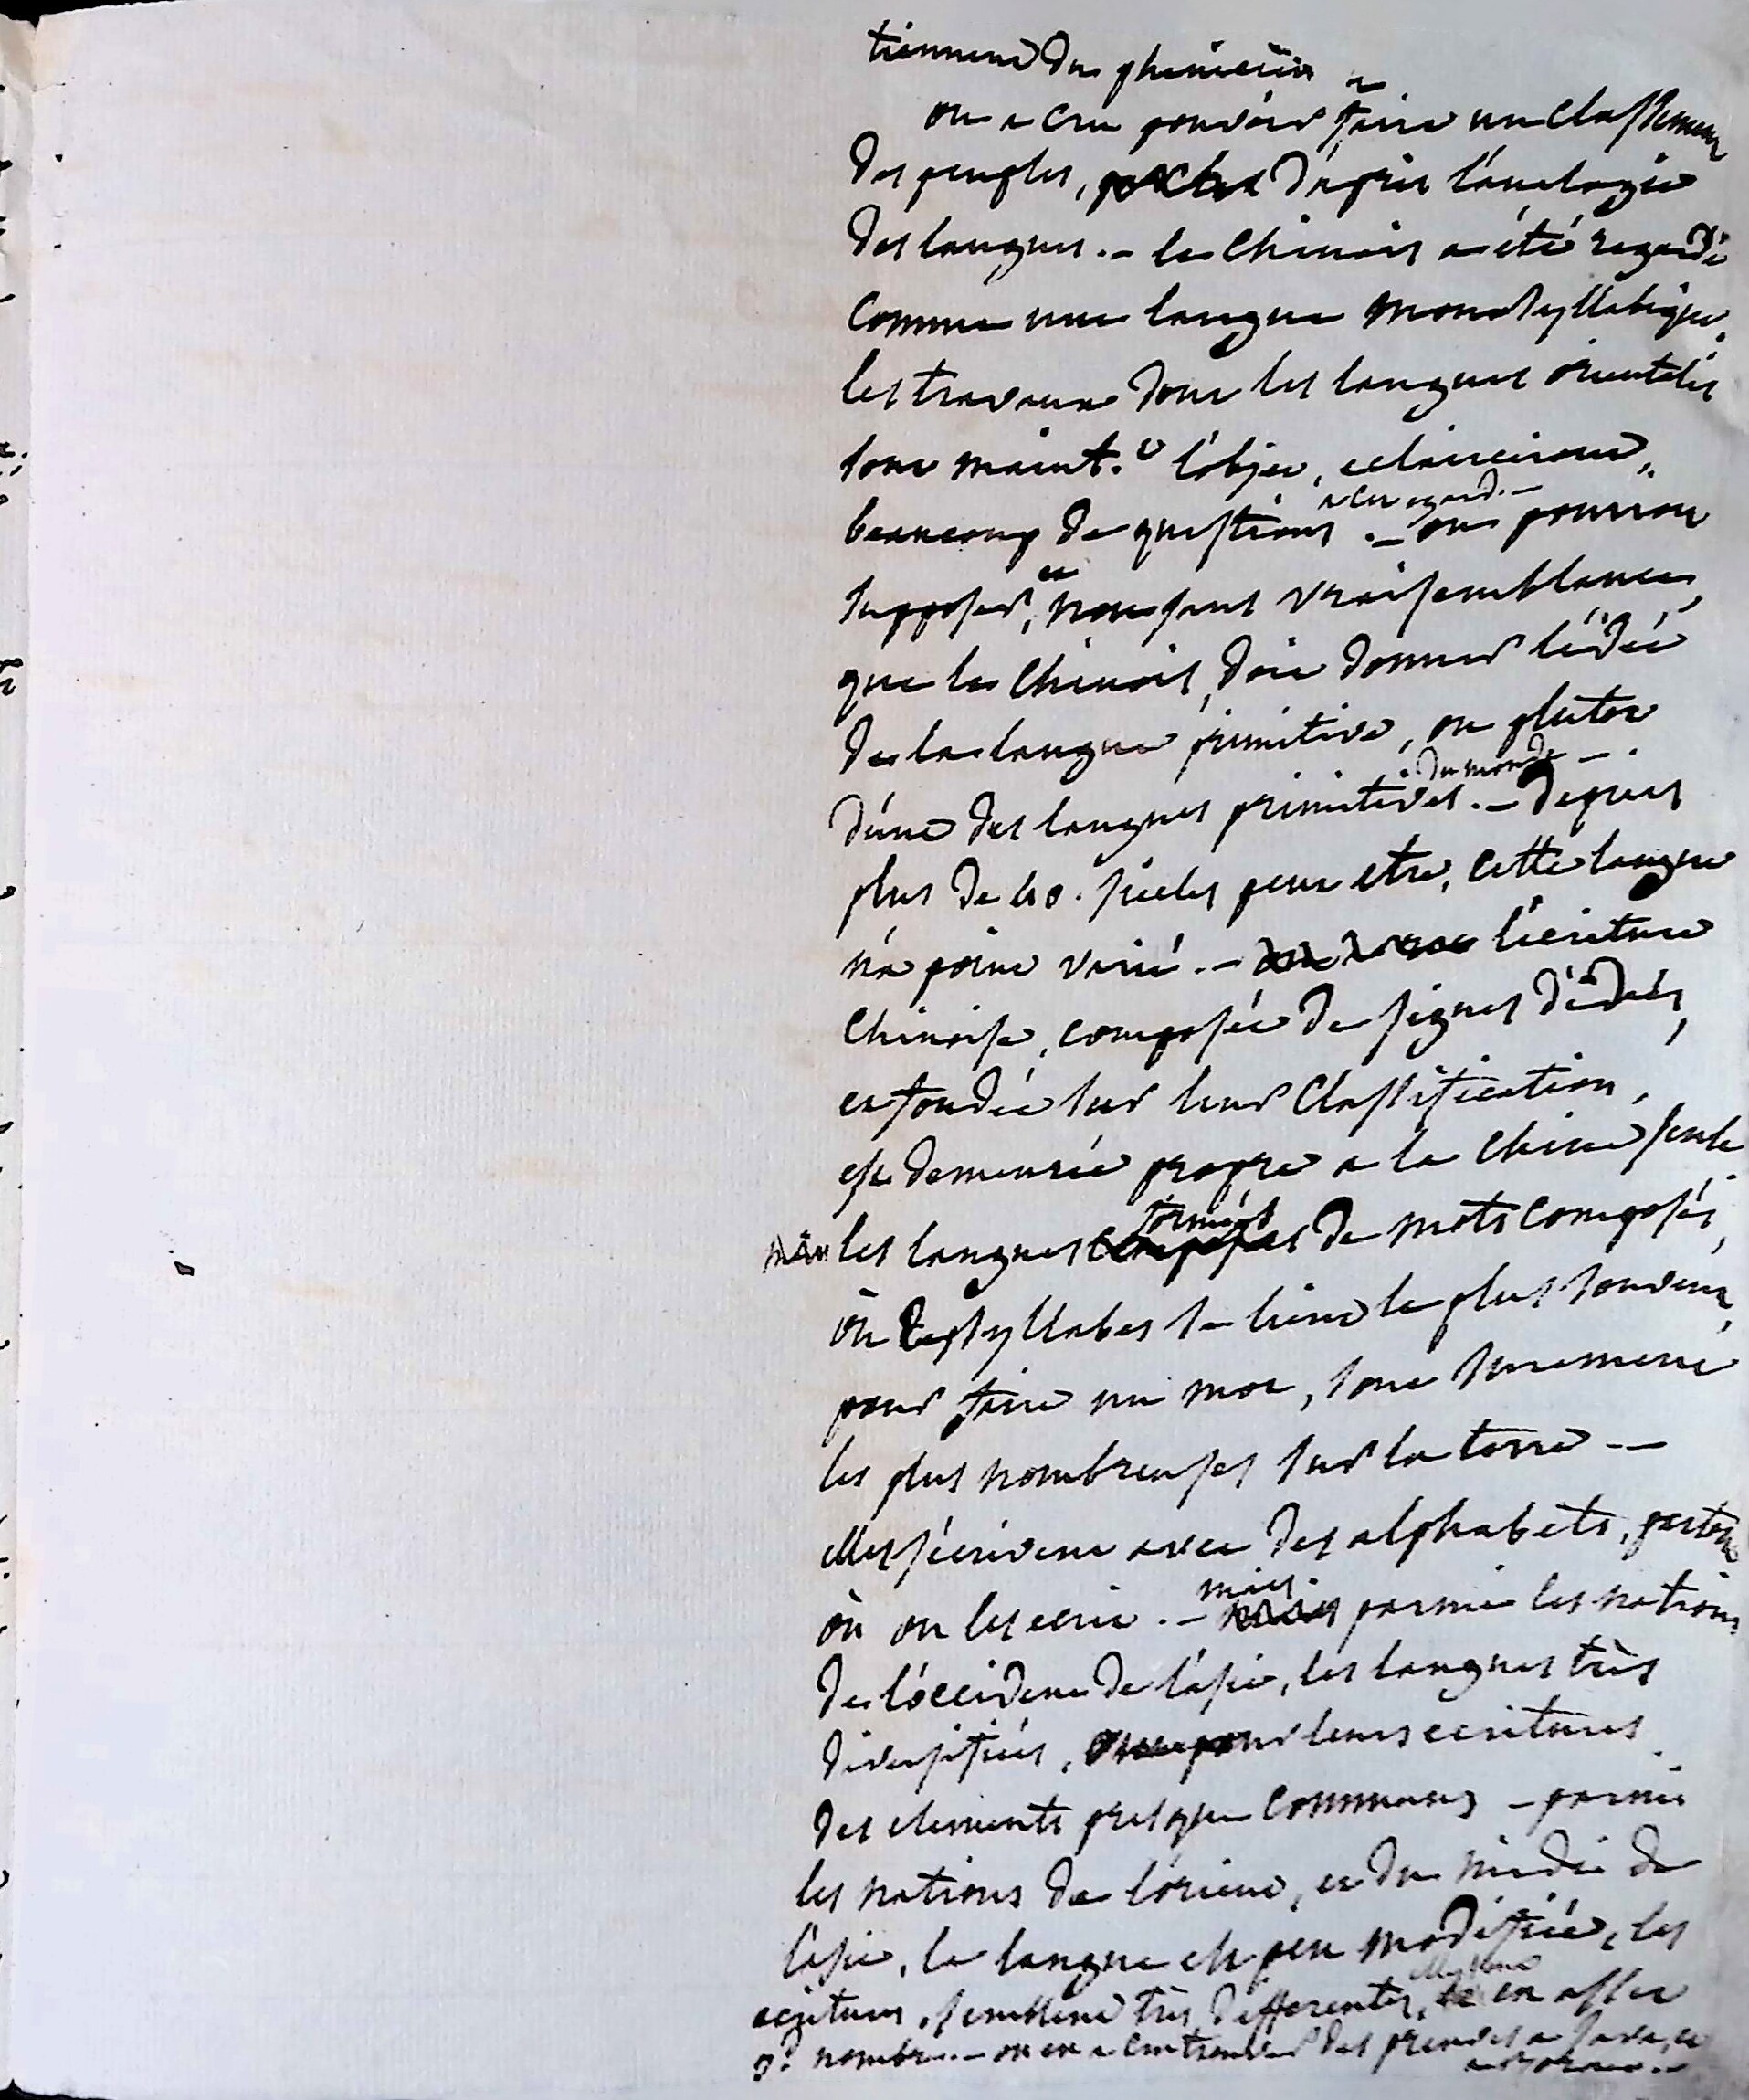 tiennent du phenicien
on a cru pouvoir faire un classement
des peuples, d'après l'analogie
des langues. – le chinois a été regardé
comme une langue monosyllabique.
les travaux dont les langues orientales
sont maint.t l'objet, eclairciront,
beaucoup de questions a cet egard. – on pourroit
supposer, et non sans vraisemblance,
que le chinois, doit donner l'idée
de la langue primitive, ou plutot
d'une des langues primitives du monde. – depuis
plus de 40. siecles peut etre, cette langue
n'a point varié. – l'ecriture
chinoise, composée de signes d'idées,
et fondée sur leur classification,
est demeurée propre a la chine seule
les langues formées de mots composés,
où les syllabes se lient le plus souvent,
pour faire un mot, sont surement
les plus nombreuses sur la terre. –
elles s'ecrivent avec des alphabets, partout
où on les ecrit. – mais parmi les nations
de l'occident de l'asie, les langues très
diversifiées, ont pour leurs ecritures
des elements presque communs – parmi
les nations de l'orient, et du midi de
l'asie, la langue est peu modifiée, les
ecritures, semblent très differentes, elles sont en assez
g.d nombre. – on en a cru trouver des preuves a Java, et